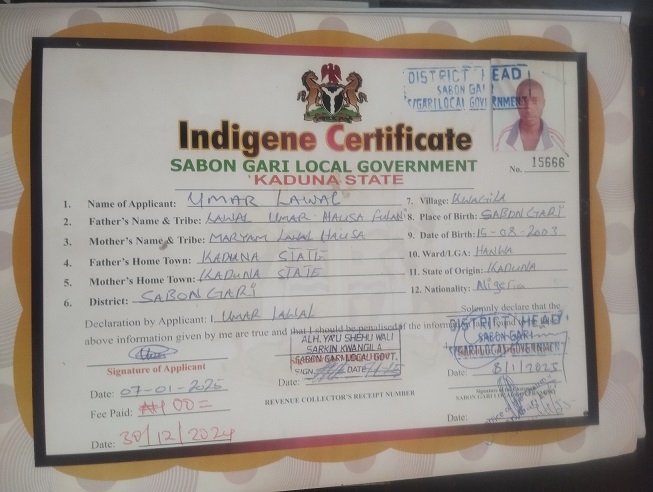 DISTRICT HEAD
SABON GARI
S/GARI LOCAL GOVERNMENT
Indigene Certificate
SABON GARI LOCAL GOVERNMENT
KADUNA STATE
No. 15666
1. Name of Applicant: UMAR LAWAL
2. Father's Name & Tribe: LAWAL UMAR HAUSA FULANI
3. Mother's Name & Tribe: MARYAM LAWAL HAUSA
4. Father's Home Town: KADUNA STATE
5. Mother's Home Town: KADUNA STATE
6. District: SABON GARI
7. Village: KWAGILA
8. Place of Birth: SABON GARI
9. Date of Birth: 15-08-2003
10. Ward/LGA: HANWA
11. State of Origin: KADUNA
12. Nationality: Nigeria
Declaration by Applicant: I UMAR LAWAL Solemnly declare that the
above information given by me are true and that I should be penalised if the information found
Signature of Applicant
Date: 07-01-2025
Fee Paid: 
Date: 30/12/2024
ALH. YA'U SHEHU WALI
SARKIN KWANGILA
SABON GARI LOCAL GOVT.
SIGN DATE
Date:
REVENUE COLLECTOR'S RECEIPT NUMBER
DISTRICT HEAD
SABON GARI
S/GARI LOCAL GOVERNMENT
Date: 8/1/2025
SABON GARI LOCAL
Date: